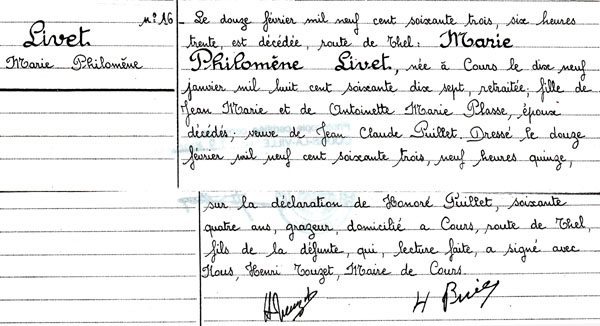 Livet
Marie Philomène
N° 16
Le douze février mil neuf cent soixante trois, six heures
trente, est décédée, route de Thel : Marie
Philomène Livet, née à Cours le dix neuf
janvier mil huit cent soixante dix sept, retraitée; fille de
Jean Marie et de Antoinette Marie Plasse, époux
décédés; veuve de Jean Claude Puillet. Dressé le douze
février mil neuf cent soixante trois, neuf heures quinze,
sur la déclaration de Honoré Puillet, soixante
quatre ans, grazeur, domicilié a Cours, route de Thel,
fils de la défunte, qui, lecture faite, a signé avec
Nous, Henri Touzet, Maire de Cours.